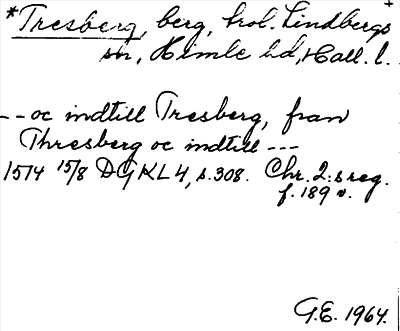 *Tresberg, berg, trol. Lindbergs
sn, Himle hd, Hall. l.
-- oc indtill Tresberg, fran
Thresberg oc indtill ---
1514 15/8 DGKL 4, s. 308. Chr. 2:s reg.
f. 189 v.
G.E. 1964.